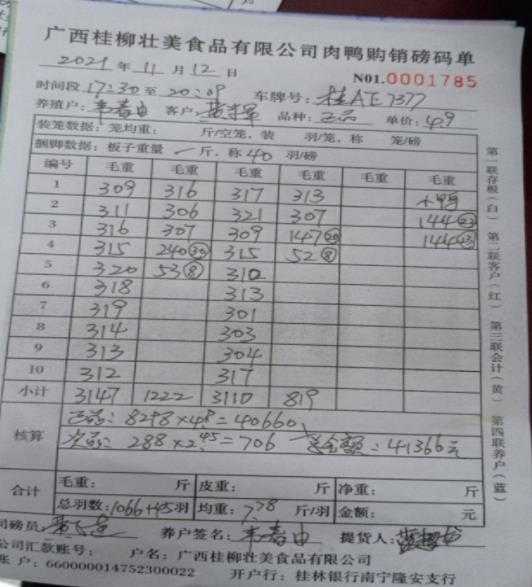 广西桂柳壮美食品有限公司肉鸭购销磅码单
2021年11月12日
N01.0001785
时间段17:30至20:09 车牌号:桂AE7377
养殖户: 客户: 品种:正品 单价:4.9
装笼数据:笼均重: 斤/空笼,装 羽/笼,称 笼/磅
捆脚数据:板子重量 一 斤,称 40 羽/磅
编号 毛重 毛重 毛重 毛重 毛重 毛重
1 309 316 317 313 小鸭
2 311 306 321 307 144
3 316 307 309 147 20 144
4 315 240 30 315 52 8
5 320 53 8 310
6 318 313
7 319 301
8 314 303
9 313 304
10 312 317
小计 3147 1222 3110 819
核算
正品:8298×4.9=40660
次品:288×2.45=706 总金额:41366元
合计
毛重: 斤 皮重: 斤 净重: 斤
总羽数:1066+45羽 均重:7.78 斤/羽 金额: 元
司磅员: 养户签名: 提货人:
公司汇款账号: 户名:广西桂柳壮美食品有限公司
账 户:660000014752300022 开户行:桂林银行南宁隆安支行
第一联存根(白)第二联客户(红)第三联会计(黄)第四联养户(蓝)